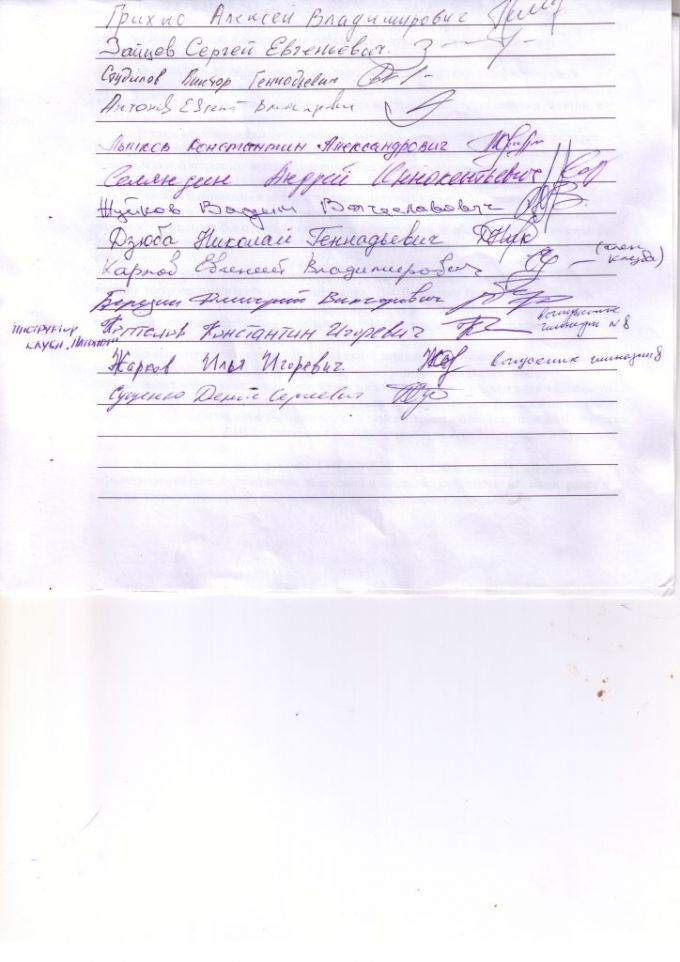 Грихно Алексей Владимирович
Зайцев Сергей Евгеньевич.
Виктор Геннадьевич
Антонов Евгений
Константин Александрович
Селяндин Андрей Иннокентьевич
Шуйков Вадим Вячеславович
Дзюба Николай Геннадьевич
Карпов Евгений Владимирович (член клуба)
Бородин Дмитрий Викторович
инструктор клуба Константин Игоревич выпускник гимназии №8
Жарков Илья Игоревич. выпускник гимназии 8
Сущенко Денис Сергеевич